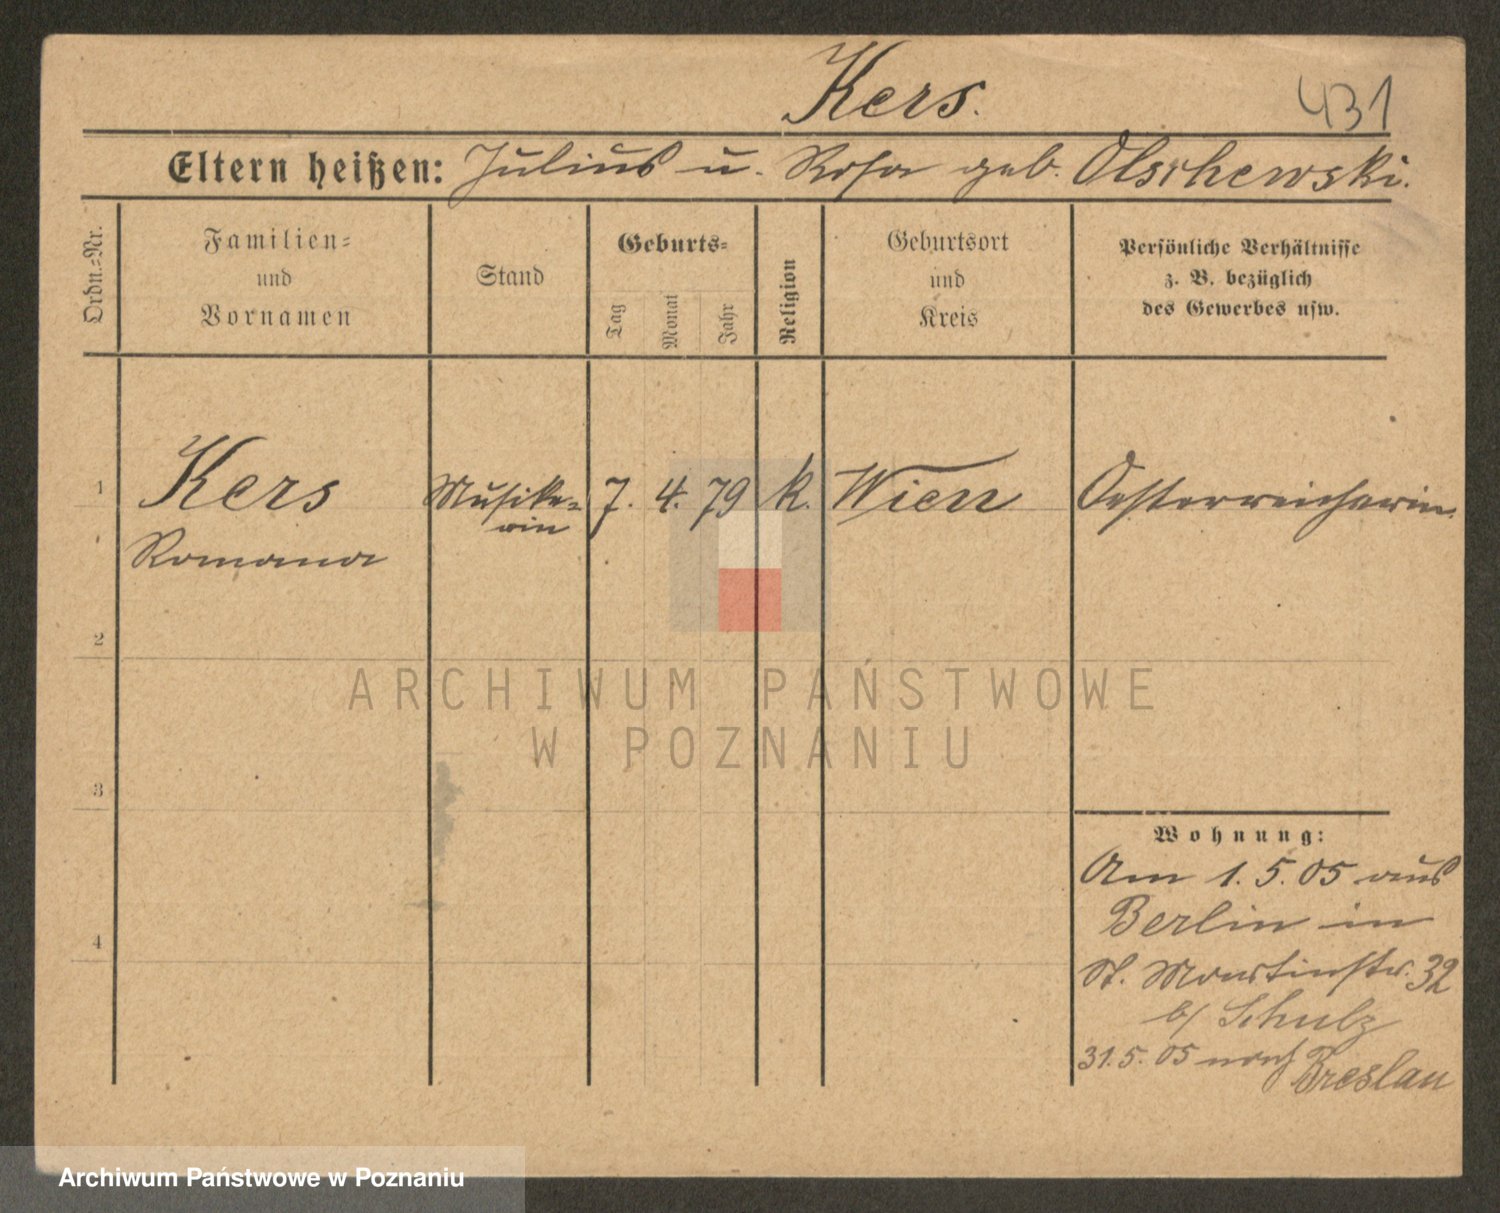 Kers.
431
Eltern heißen: Julius u. Rosa geb. Olschewski.
Ordn.-Nr.
Familien-
und
Vornamen
Stand
Geburts-
Tag
Monat
Jahr
Religion
Geburtsort
und
Kreis
Persönliche Verhältnisse
z. B. bezüglich
des Gewerbes usw.
1
Kers
Romana
Musike-
rin
7. 4. 79
k.
Wien
Oesterreicherin.
2
3
4
ARCHIWUM PAŃSTWOWE
W POZNANIU
Wohnung:
Am 1. 5. 05 aus
Berlin in
St. Martinstr. 32
b/ Schulz
31. 5. 05 nach Breslau
Archiwum Państwowe w Poznaniu